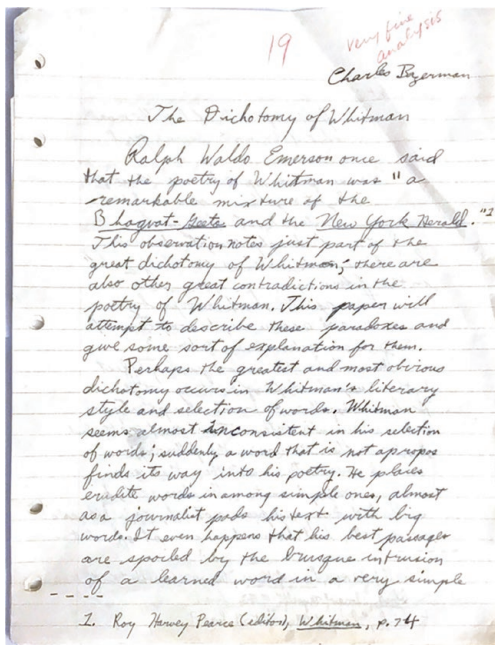 19
very fine
analysis
Charles Bazerman
The Dichotomy of Whitman
Ralph Waldo Emerson once said
that the poetry of Whitman was "a
remarkable mixture of the
Bhagvat-Geeta and the New York Herald."1
This observation notes just part of the
great dichotomy of Whitman; there are
also other great contradictions in the
poetry of Whitman. This paper will
attempt to describe these paradoxes and
give some sort of explanation for them.
Perhaps the greatest and most obvious
dichotomy occurs in Whitman's literary
style and selection of words. Whitman
seems almost inconsistent in his selection
of words; suddenly a word that is not apropos
finds its way into his poetry. He places
erudite words in among simple ones, almost
as a journalist pads his text with big
words. It even happens that his best passages
are spoiled by the brusque intrusion
of a learned word in a very simple
1. Roy Harvey Pearce (editor), Whitman, p. 74